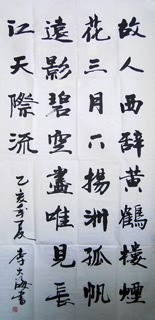 故人西辞黄鶴樓煙
花三月下揚洲孤帆
遠影碧空盡唯見長
江天際流
乙亥夏李大海書